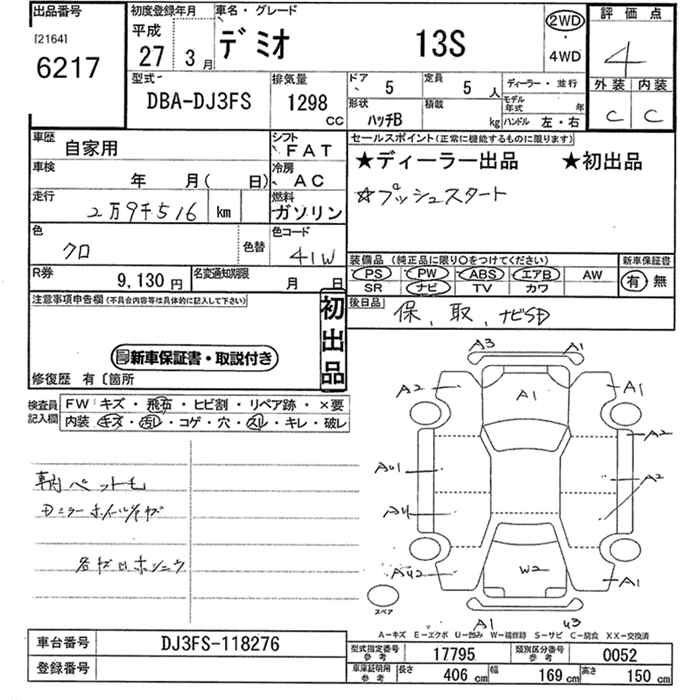 出品番号
[2164]
6217
初度登録年月
平成
27 3月
車名・グレード
デミオ 13S
2WD
・
4WD
評価点
4
外装 内装
C C
型式
DBA-DJ3FS
排気量
1298
CC
ドア
5
定員
5 人
形状
ハッチB
積載
kg
ディーラー・並行
モデル年式 年
ハンドル 左・右
車歴
自家用
シフト
FAT
車検
年 月( 日)
冷房
AC
走行
2万9千516 km
燃料
ガソリン
色
クロ
色替
色コード
41W
R券
9,130円
名変通知期限
月 日
セールスポイント(正常に機能するものに限ります)
★ディーラー出品 ★初出品
☆プッシュスタート
装備品(純正品に限り〇をつけてください)
PS PW ABS エアB AW
SR ナビ TV カワ
新車保証書
有 無
後日品
保、取、ナビSD
注意事項申告欄(不具合内容等は具体的に記入して下さい)
初出品
新車保証書・取説付き
修復歴 有〔箇所
検査員記入欄
FW:キズ・飛石・ヒビ割・リペア跡・×要
内装:キズ・汚レ・コゲ・穴・スレ・キレ・破レ
ペット毛
ホイルキズ
A3 A1
A2 A1 A1
A2
AU1 A2
AU
AU2 W2 A1
A1 U3
スペア
A-キズ E-エクボ U-凹み W-補修跡 S-サビ C-腐食 XX-交換済
車台番号
DJ3FS-118276
登録番号
型式指定番号
参考
17795
類別区分番号
参考
0052
車庫証明用
参考
長さ 406 cm 幅 169 cm 高さ 150 cm